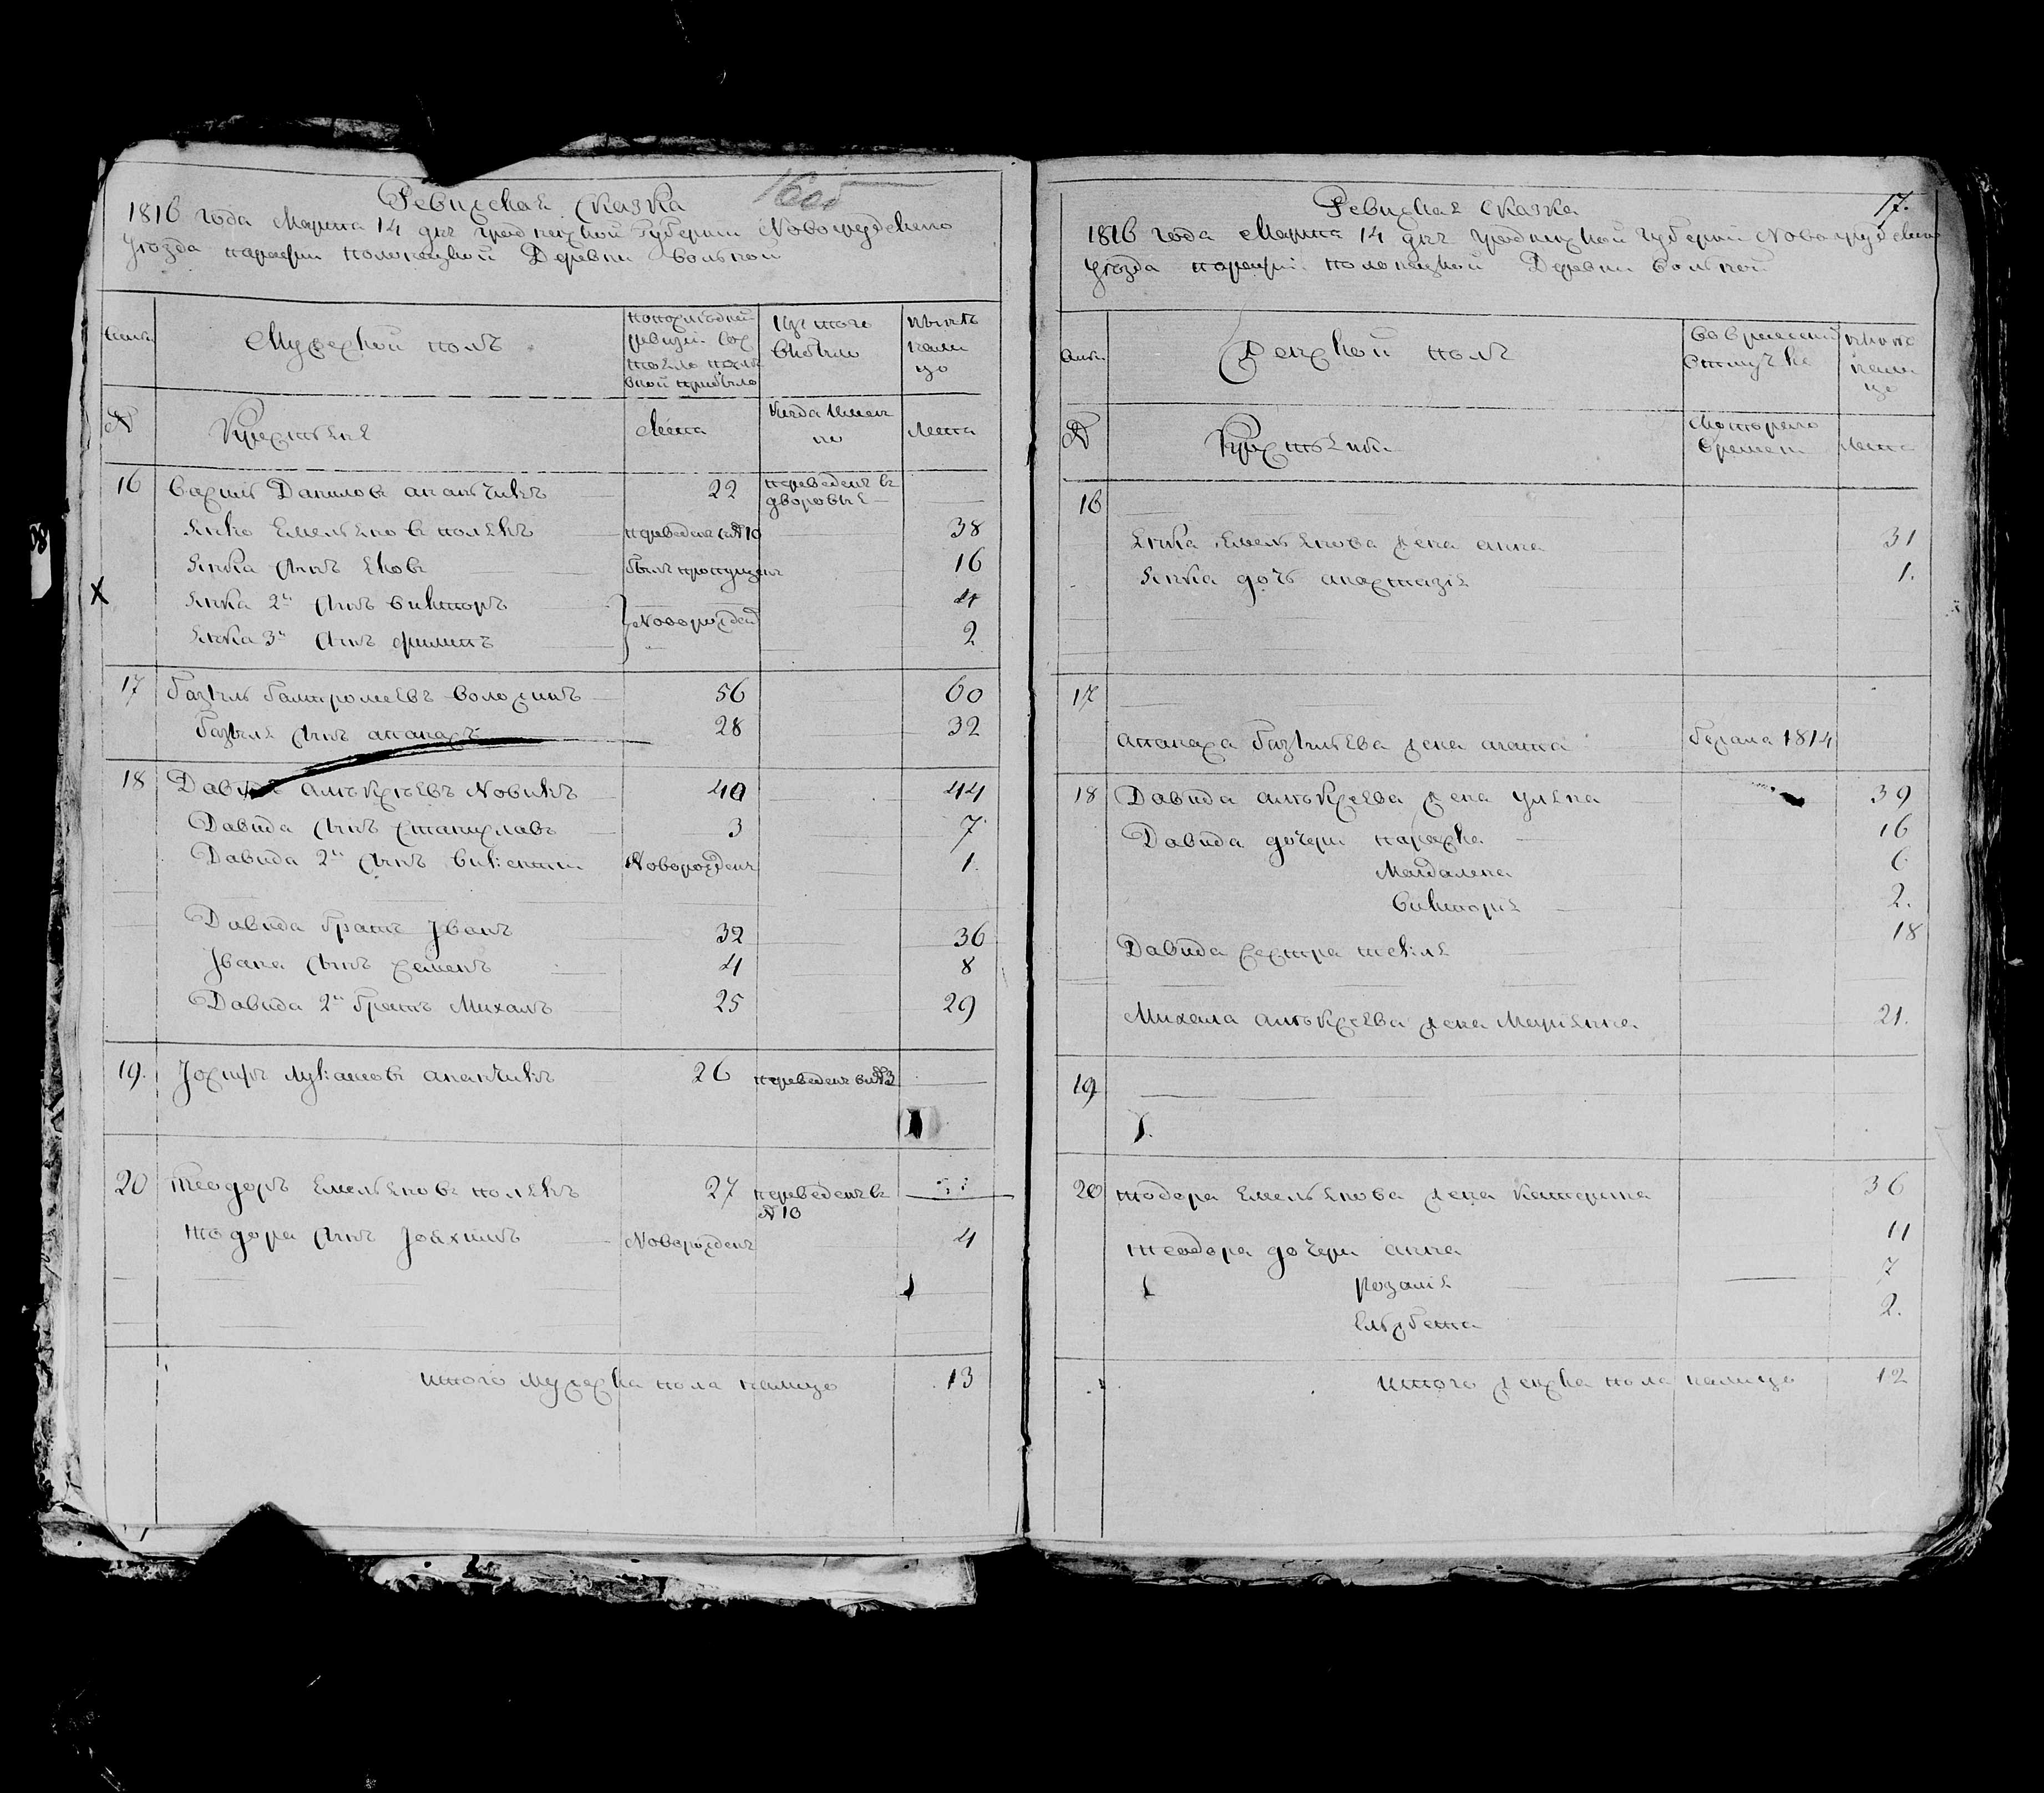 Ревизская Сказка
1816 года Марта 14 дня Гродненской Губернии Новогрудского
уезда парафии Полонецкой Деревни Вольной
Мужеской полъ
по последней ревизии состояло и после оной прибыло
Изъ того выбыло
ныне на лицо
№
Крестьяне
Лета
Когда именно
Лета
16 Василь Даниловъ Апанчикъ 22 переведенъ в дворовые
Янко Емельяновъ Полякъ переведенъ с №10 38
Янка Сынъ Яковъ былъ пропущенъ 16
Янка 2й Сынъ Викторъ 4
Новорожден
Янка 3й Сынъ Филипъ 2
17 Базыль Балтромеевъ Волосникъ 56 60
Базыля Сынъ Апанасъ 28 32
18 Давидъ Алексеевъ Новикъ 40 44
Давида Сынъ Станиславъ 3 7
Давида 2й Сынъ Викентий Новорожденъ 1
Давида братъ Іванъ 32 36
Івана Сынъ Семенъ 4 8
Давида 2й братъ Михалъ 25 29
19. Іосифъ Лукашовъ Апанчикъ 26 переведенъ в №3
20 Теодоръ Емельяновъ Полякъ 27 переведенъ в №10
Тодора Сынъ Іоахимъ Новорожденъ 4
Итого Мужеска пола налицо 13
17.
Ревизская Сказка
1816 года Марта 14 дня Гродненской Губернии Новогрудского
уезда парафии Полонецкой Деревни Вольной
Женской полъ
Во временной отлучке
ныне на лицо
№
Крестьянки
С которого времени
Лета
16
Янка Емельянова жена Анна 31
Янка дочь Анастазія 1.
17
Апанаса Базылева жена Агата бежала 1814
18 Давида Алексеева жена Уляна 39
Давида дочери Параска 16
Магдалена 6
Викторія 2.
Давида сестра Текля 18
Михала Алексеева жена Маріянна 21.
19
20 Тодора Емельянова жена Катерина 36
Теодора дочери Анна 11
Розалія 7
Ельжбета 2.
Итого женска пола налицо 12